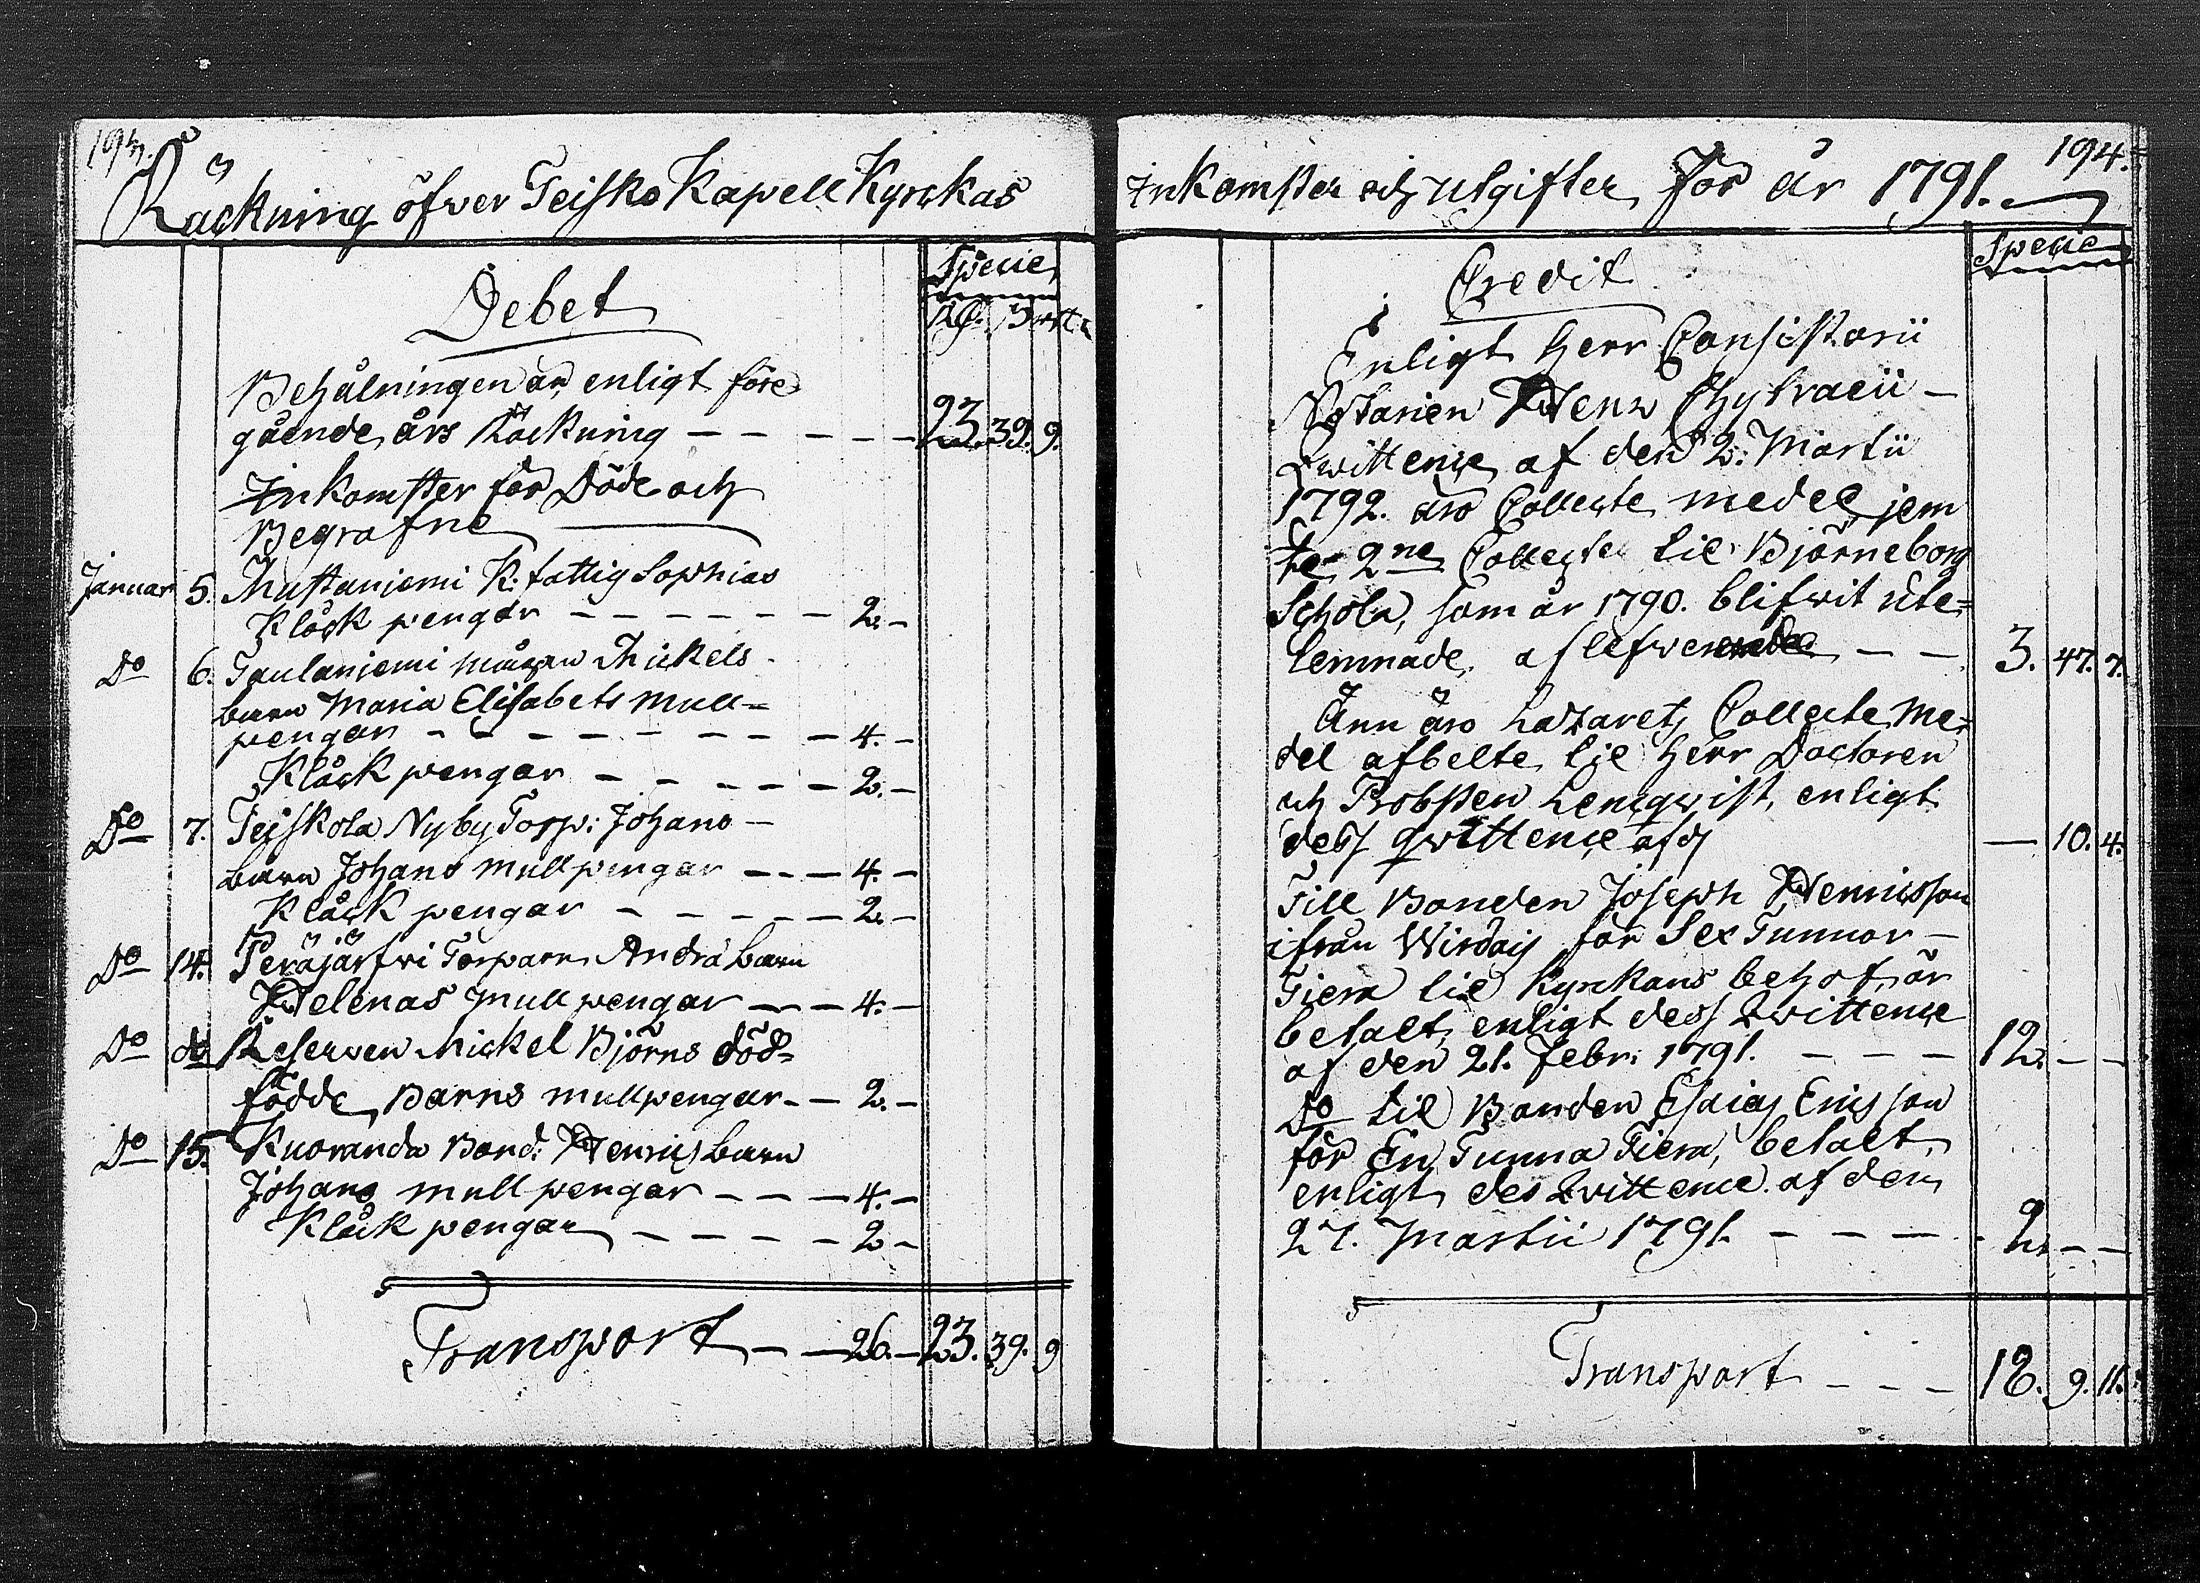 193.
Räckning öfver Teisko Kapell Kyrckas
Specie
Debet
Rd. s. rst.
Behålningen är, enligt före-
gående års Räckning — — — — — 23. 39. 9.
Inkomster för Döde och
Begrafne
Januar 5. Mustaniemi K. fattig Sophias
Klåck pengar — — — — — — 2. —
Do 6. Taulaniemi Mickels
barn Maria Elisabets mull-
pengar — — — — — — — — 4. —
Klåck pengar — — — — — 2. —
Do 7. Teiskola Nyby Torp: Johans —
barn Johans mullpengar — — — 4. —
Klåck pengar — — — — — 2. —
Do 14. Peräjärfwi Torparn Andrä barn
Helenas mullpengar — — — 4. —
Do do Reserven Mickel Björns död-
födde Barns mullpengar — — 2. —
Do 15. Kuoranda Bond: Henrics barn
Johans mullpengar — — — 4. —
Klåck pengar — — — — — 2 —
Transport — — 26. — 23. 39. 9
194.
Inkomster och utgifter för år 1791.
Specie
Credit
Enligt Herr Consistorii
Notarien Henr Chytraeii —
Qvittence af den 2. Martii
1792. äro Collecte medel jem
te 2ne Collecter til Björneborg
Schola, som år 1790. blifwit ute=
lemnade, aflefwererade — — 3. 47. 7.
Änn äro Lazarets Collecte me-
del afbelte til Herr Doctoren
och Probsten Lenqvist, enligt
dess qwittence af d — 10. 4.
Till Bonden Joseph Henricsson
ifrån Wirdois för Sex Tunnor —
Tiera til Kyrkans behof, är
betalt, enligt dess Qvittence
af den 21. Febr: 1791. — — — 12. — —
Do til Bonden Esaias Ericsson
för En Tunna Tiera, betalt,
enligt des Qvittence af den
27. Martii 1791. — — — 2. — —
Transport — — — 18. 9. 11.